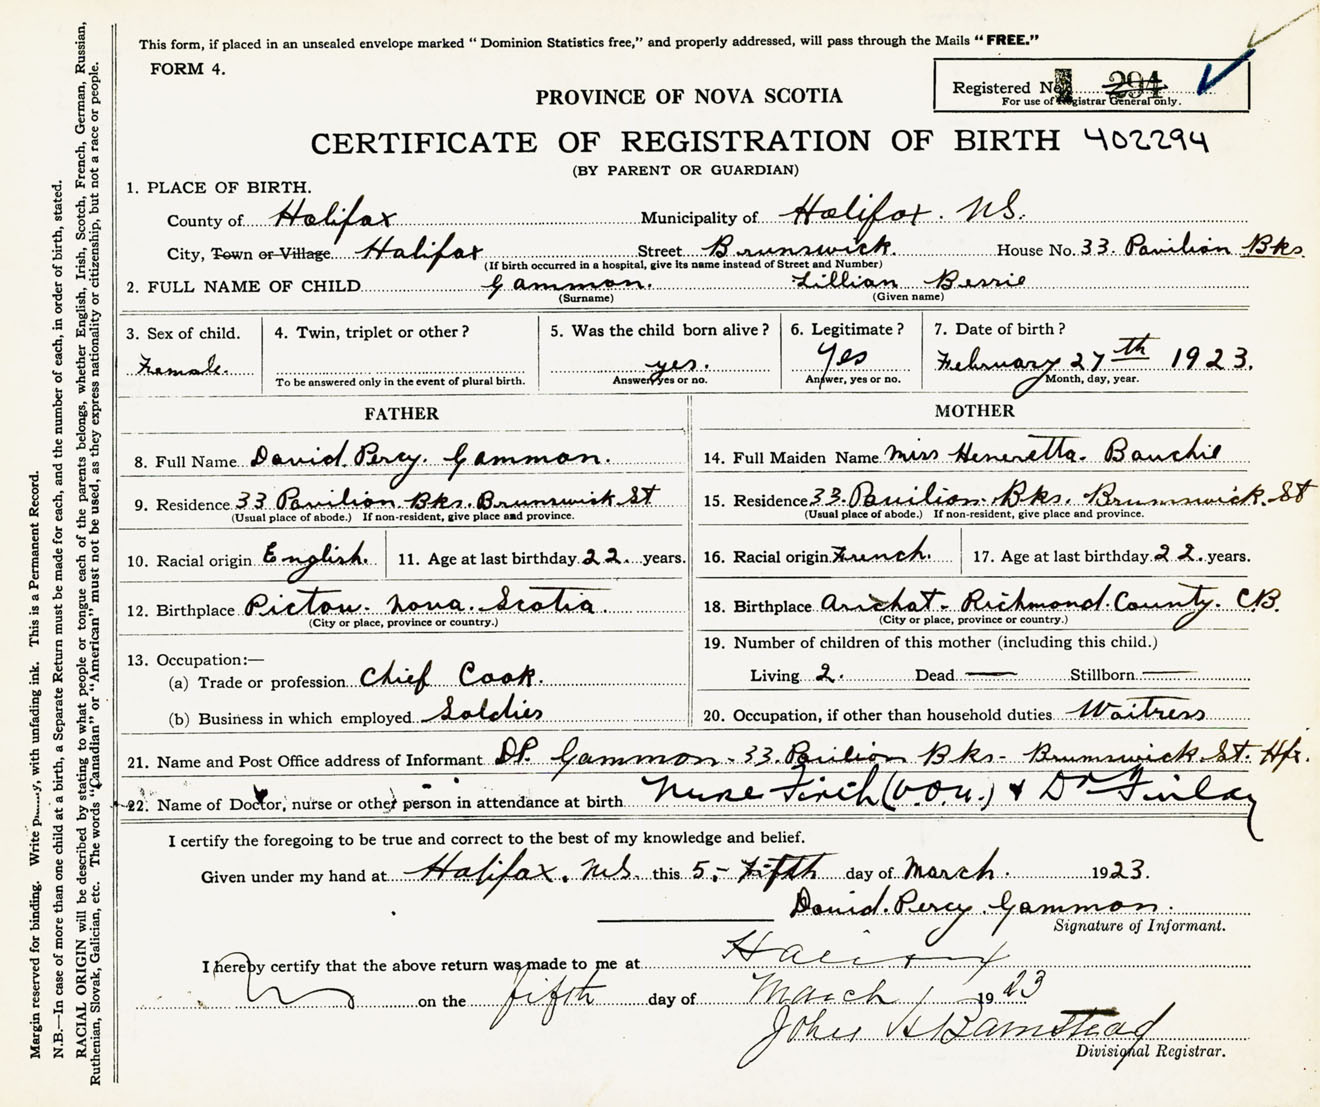 This form, if placed in an unsealed envelope marked “ Dominion Statistics free,” and properly addressed, will pass through the Mails “ FREE.”
FORM 4.
Registered No. 294
For use of Registrar General only.
PROVINCE OF NOVA SCOTIA
CERTIFICATE OF REGISTRATION OF BIRTH 402294
(BY PARENT OR GUARDIAN)
1. PLACE OF BIRTH.
County of Halifax Municipality of Halifax. N.S.
City, Town or Village Halifax Street Brunswick. House No. 33. Pavilion Bks.
(If birth occurred in a hospital, give its name instead of Street and Number)
2. FULL NAME OF CHILD Gammon. Lillian Berrie
(Surname) (Given name)
3. Sex of child. 4. Twin, triplet or other ? 5. Was the child born alive ? 6. Legitimate ? 7. Date of birth ?
Female. yes. Yes February 27th 1923.
To be answered only in the event of plural birth. Answer, yes or no. Answer, yes or no. Month, day, year.
FATHER MOTHER
8. Full Name David. Percy. Gammon. 14. Full Maiden Name Miss Heneretta. Bauchie
9. Residence 33 Pavilion Bks. Brunswick St 15. Residence 33. Pavilion. Bks. Brunswick. St
(Usual place of abode.) If non-resident, give place and province. (Usual place of abode.) If non-resident, give place and province.
10. Racial origin English. 11. Age at last birthday 22. years. 16. Racial origin French. 17. Age at last birthday 22. years.
12. Birthplace Pictou. Nova. Scotia. 18. Birthplace Arichat. Richmond. County. C.B.
(City or place, province or country.) (City or place, province or country.)
13. Occupation:— 19. Number of children of this mother (including this child.)
(a) Trade or profession Chief Cook. Living 2. Dead — Stillborn —
(b) Business in which employed Soldier 20. Occupation, if other than household duties Waitress
21. Name and Post Office address of Informant D.P. Gammon. 33. Pavilion Bks. Brunswick. St. Hfx.
22. Name of Doctor, nurse or other person in attendance at birth Nurse (V.O.N.) & Dr Finlay
I certify the foregoing to be true and correct to the best of my knowledge and belief.
Given under my hand at Halifax. N.S. this 5,- Fifth day of March. 1923.
David. Percy. Gammon.
Signature of Informant.
I hereby certify that the above return was made to me at Halifax
on the fifth day of March 1923
John
Divisional Registrar.
Margin reserved for binding. Write , with unfading ink. This is a Permanent Record.
N.B.—In case of more than one child at a birth, a Separate Return must be made for each, and the number of each, in order of birth, stated.
RACIAL ORIGIN will be described by stating to what people or tongue each of the parents belongs, whether English, Irish, Scotch, French, German, Russian,
Ruthenian, Slovak, Galician, etc. The words “Canadian” or “American” must not be used, as they express nationality or citizenship, but not a race or people.